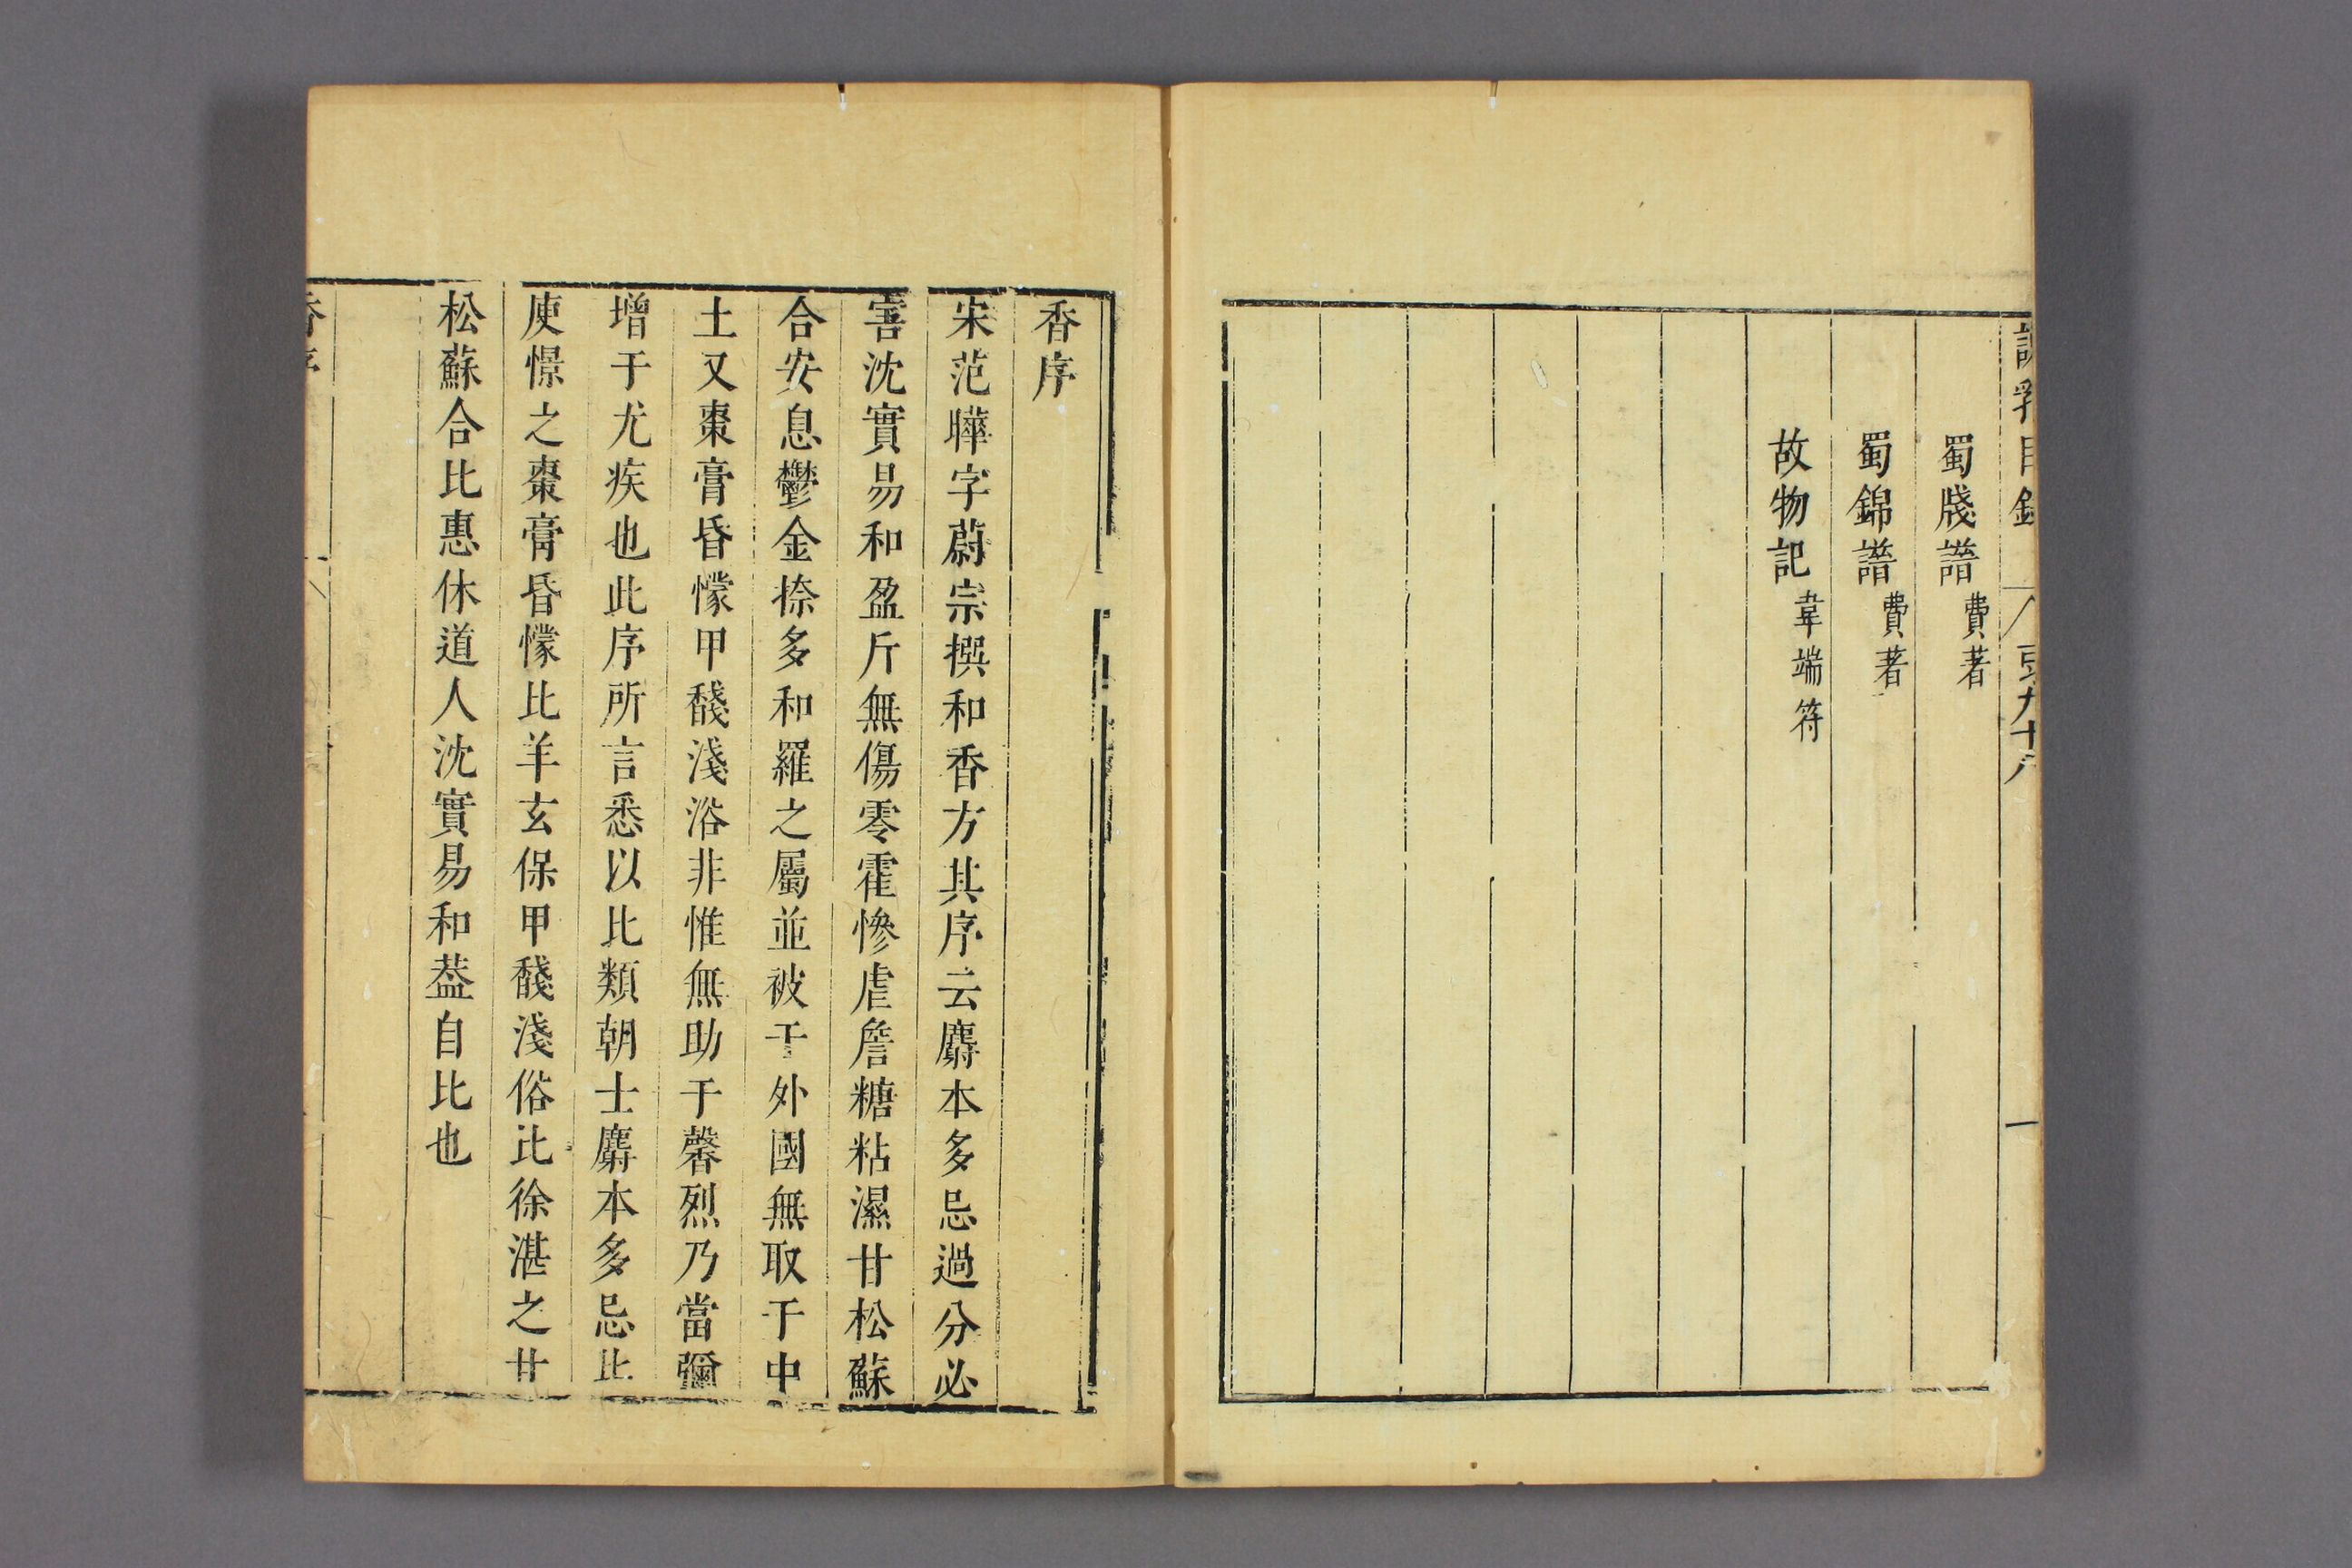 目錄
蜀牋譜 費著
蜀錦譜 費著
故物記 韋端符
香序
宋范曄字蔚宗撰和香方其序云麝本多忌過分必
害沈實易和盈斤無傷零霍慘虐詹糖粘濕甘松蘇
合安息鬱金捺多和羅之屬並被于外國無取于中
土又棗膏昏懞甲馢淺浴非惟無助于馨烈乃當彌
增于尤疾也此序所言悉以比類朝士麝本多忌比
庾憬之棗膏昏懞比羊玄保甲馢淺俗比徐湛之甘
松蘇合比惠休道人沈實易和葢自比也